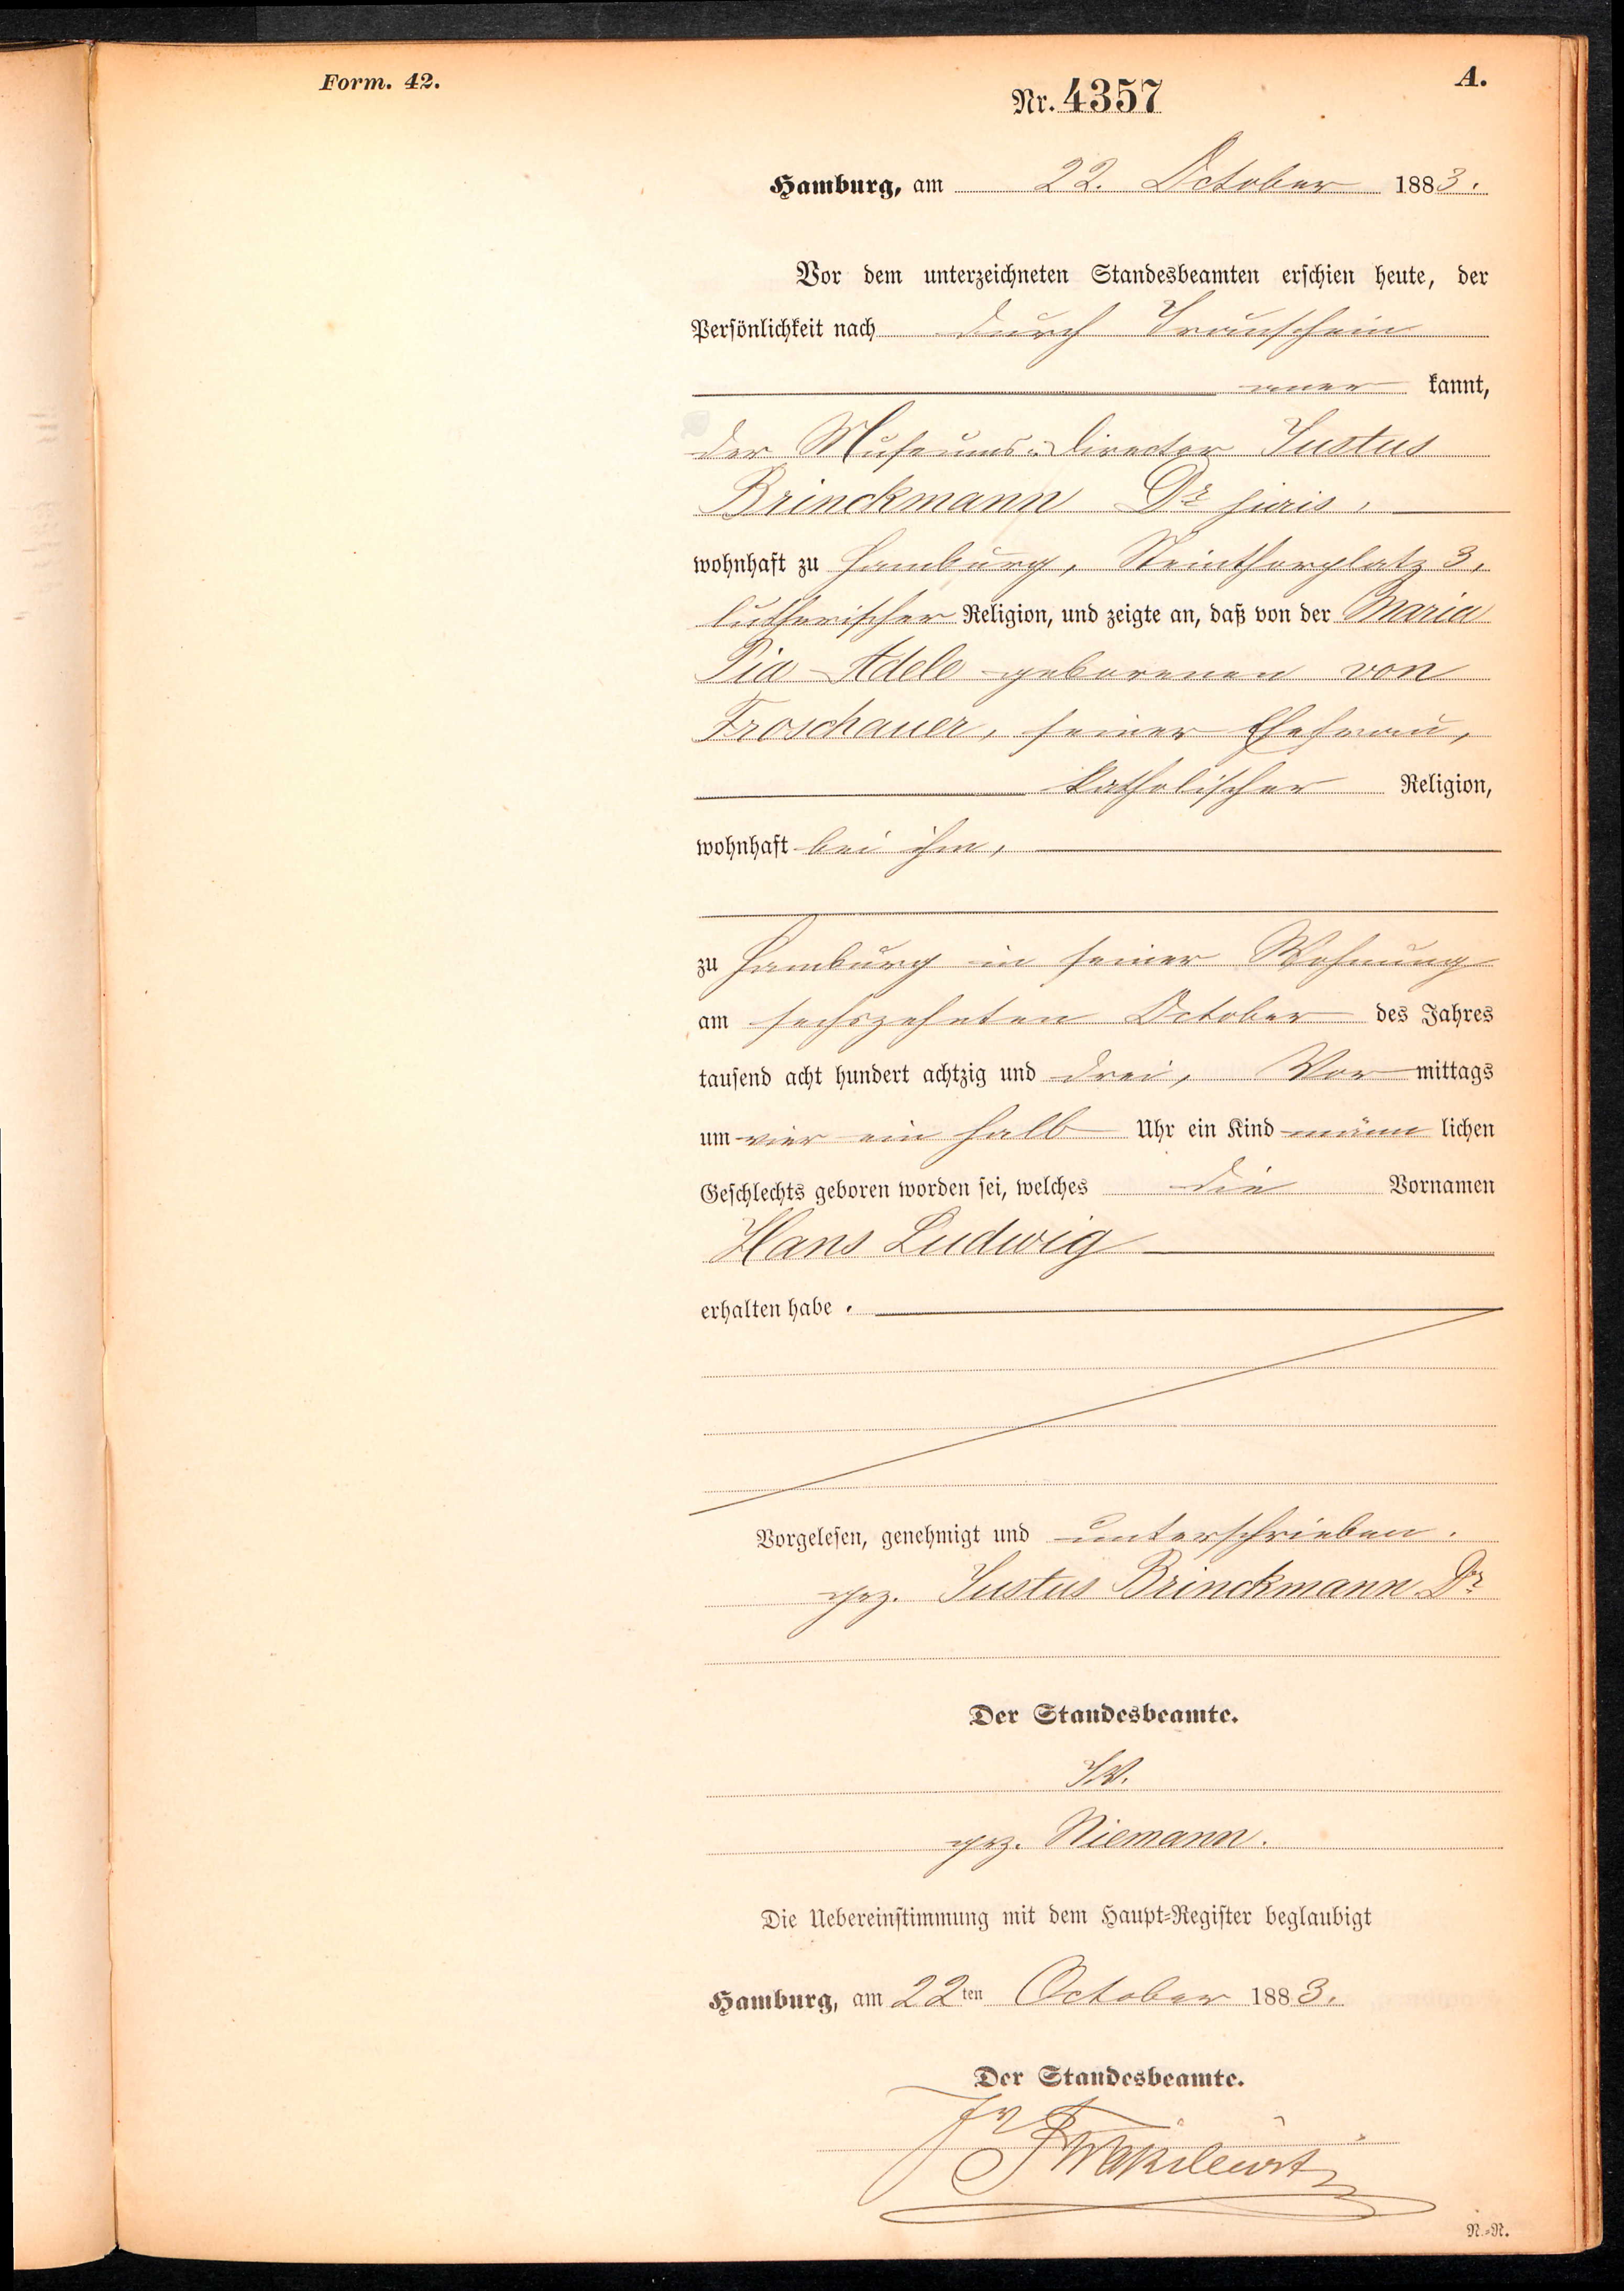 Form. 42.
A.
Nr. 4357
Hamburg, am 22. October 1883.
Vor dem unterzeichneten Standesbeamten erschien heute, der
Persönlichkeit nach durch Trauschein
aner kannt,
der Museums-Director Justus
Brinckmann Dr juris,
wohnhaft zu Hamburg, Steinthorplatz 3,
lutherischer Religion, und zeigte an, daß von der Maria
Pia Adele geborenen von
Froschauer, seiner Ehefrau,
katholischer Religion,
wohnhaft bei ihm,
zu Hamburg in seiner Wohnung
am sechszehnten October des Jahres
tausend acht hundert achtzig und drei, Vor mittags
um vier ein halb Uhr ein Kind männ lichen
Geschlechts geboren worden sei, welches die Vornamen
Hans Ludwig
erhalten habe.
Vorgelesen, genehmigt und unterschrieben.
gez. Justus Brinckmann Dr
Der Standesbeamte.
IV.
gez. Niemann.
Die Uebereinstimmung mit dem Haupt-Register beglaubigt
Hamburg, am 22ten October 1883.
Der Standesbeamte.
IV
N.-N.